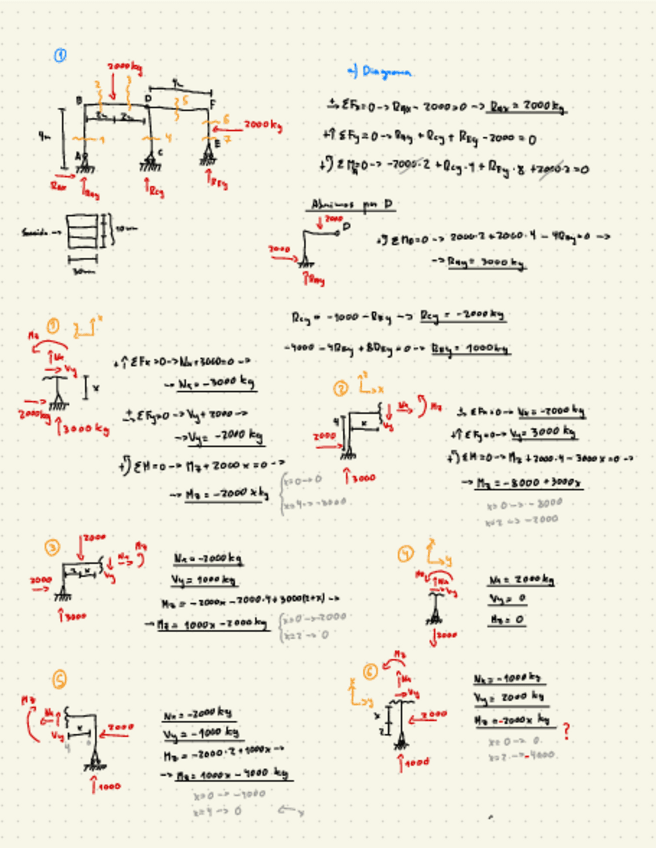 ①
a) Diagrama
2000kg
4m
2 3
5
B D F
2m 2m
6
2000kg
4m
1 4 7
E
A C
RAx RAy RCy REy
ΣFx=0 -> RAx - 2000=0 -> RAx = 2000kg
+↑ ΣFy=0 -> RAy + RCy + REy - 2000 = 0
ΣMA=0 -> -2000·2 + RCy·4 + REy·8 + 2000·2=0
Abrimos por D
2000
D
2000
RAy
+) ΣMD=0 -> 2000·2+2000·4 - 4RAy=0 ->
-> RAy = 3000 kg
Sección ->
30mm
RCy = -1000 - REy -> RCy = -2000kg
-4000 - 4REy + 8REy = 0 -> REy = 1000kg
①
Mz
Nx
Vy
x
2000kg
3000kg
+↑ ΣFx=0 -> Nx+3000=0 ->
-> Nx = -3000 kg
ΣFy=0 -> Vy + 2000 ->
-> Vy = -2000 kg
+) ΣM=0 -> Mz + 2000 x = 0 ->
-> Mz = -2000 x kg
x=0 -> 0
x=4 -> -8000
②
Nx
Mz
Vy
4
x
2000
3000
ΣFx=0 -> Nx = -2000kg
+↑ ΣFy=0 -> Vy = 3000 kg
+) ΣM=0 -> Mz + 2000·4 - 3000x = 0 ->
-> Mz = -8000 + 3000x
x=0 -> -8000
x=2 -> -2000
③
2000
Mz
Nx
Vy
2 x
2000
3000
Nx = -2000kg
Vy = 1000 kg
Mz = -2000x - 2000·4 + 3000(2+x) ->
-> Mz = 1000x - 2000 kg
x=0 -> -2000
x=2 -> 0
④
x
y
Mz
Nx
Vy
2000
Nx = 2000kg
Vy = 0
Mz = 0
⑤
Mz
Nx
Vy
x
4
2000
1000
Nx = -2000kg
Vy = -1000 kg
Mz = -2000·2 + 1000x ->
-> Mz = 1000x - 4000 kg
x=0 -> -4000
x=4 -> 0
<- x
⑥
Mz
x
Nx
y
Vy
x
2
2000
1000
Nx = -1000kg
Vy = 2000 kg
Mz = -2000x kg ?
x=0 -> 0
x=2 -> -4000